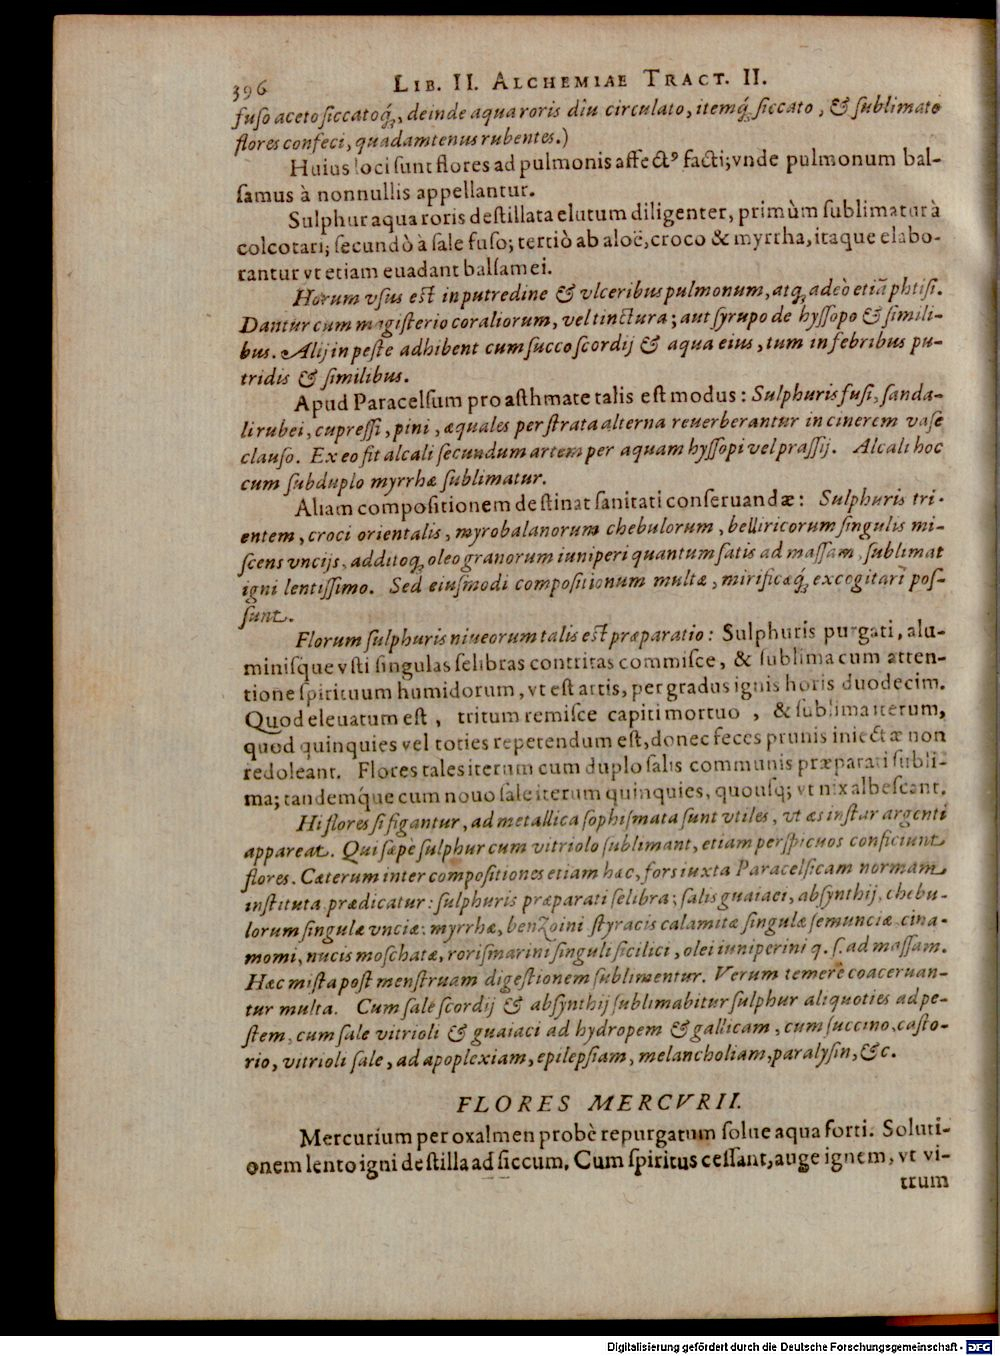 396 LIB. II. ALCHEMIAE TRACT. II.
fuso aceto siccatoq́, deinde aqua roris diu circulato, itemq́ siccato, & sublimato
flores confeci, quadamtenus rubentes.)
Huius loci sunt flores ad pulmonis affectꝰ facti; vnde pulmonum bal-
samus à nonnullis appellantur.
Sulphur aqua roris destillata elutum diligenter, primùm sublimatur à
colcotari; secundò à sale fuso; tertiò ab aloë, croco & myrrha, itaque elabo-
rantur vt etiam euadant balsamei.
Horum vsus est in putredine & vlceribus pulmonum, atq adeò etiã phtisi.
Dantur cum magisterio coraliorum, vel tinctura; aut syrupo de hyssopo & simili-
bus. Alij in peste adhibent cum succo scordij & aqua eius, tum in febribus pu-
tridis & similibus.
Apud Paracelsum pro asthmate talis est modus: Sulphuris fusi, sanda-
li rubei, cupressi, pini, æquales per strata alterna reuerberantur in cinerem vase
clauso. Ex eo fit alcali secundum artem per aquam hyssopi vel prassij. Alcali hoc
cum subduplo myrrhæ sublimatur.
Aliam compositionem destinat sanitati conseruandæ: Sulphuris tri-
entem, croci orientalis, myrobalanorum chebulorum, belliricorum singulis mi-
scens vncijs, additoq oleo granorum iuniperi quantum satis ad massam, sublimat
igni lentissimo. Sed eiusmodi compositionum multæ, mirificæq́ excogitari pos-
sunt.
Florum sulphuris niueorum talis est præparatio: Sulphuris purgati, alu-
minisque vsti singulas selibras contritas commisce, & sublima cum atten-
tione spirituum humidorum, vt est artis, per gradus ignis horis duodecim.
Quod eleuatum est, tritum remisce capiti mortuo, & sublima iterum,
quod quinquies vel toties repetendum est, donec feces prunis iniectæ non
redoleant. Flores tales iterum cum duplo salis communis præparati subli-
ma; tandemq́ue cum nouo sale iterum quinquies, quousq; vt nix albescant.
Hi flores si figantur, ad metallica sophismata sunt vtiles, vt æs instar argenti
appareat. Qui sæpè sulphur cum vitriolo sublimant, etiam perspicuos conficiunt
flores. Cæterum inter compositiones etiam hæc, fors iuxta Paracelsicam normam
instituta prædicatur: sulphuris præparati selibra; salis guaiaci, absynthij, chebu-
lorum singulæ vnciæ; myrrhæ, benzoini styracis calamitæ singulæ semunciæ, cina-
momi, nucis moschatæ, rorismarini singuli sicilici, olei iuniperini q. s. ad massam.
Hæc mista post menstruam digestionem sublimentur. Verum temerè coaceruan-
tur multa. Cum sale scordij & absynthij sublimabitur sulphur aliquoties ad pe-
stem, cum sale vitrioli & guaiaci ad hydropem & gallicam, cum succino, casto-
rio, vitrioli sale, ad apoplexiam, epilepsiam, melancholiam, paralysin, &c.
FLORES MERCVRII.
Mercurium per oxalmen probè repurgatum solue aqua forti. Soluti-
onem lento igni destilla ad siccum. Cum spiritus cessant, auge ignem, vt vi-
trum
Digitalisierung gefördert durch die Deutsche Forschungsgemeinschaft - DFG